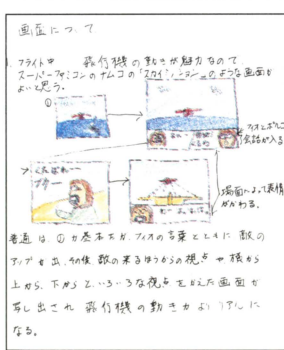 画面について
1. フライト中 飛行機の動きが魅力なので
スーパーファミコンのナムコの「スカイミッション」のような画面が
よいと思う。
①
フィオとポルコの
会話が入る
くたばれー
ブター
場面によって表情
がかわる。
普通は、①が基本だが、フィオの言葉とともに敵の
アップが出、その後 敵の来るほうからの視点や横から
上から、下からと、いろいろな視点をかえた画面が
写し出され 飛行機の動きがよりリアルに
なる。